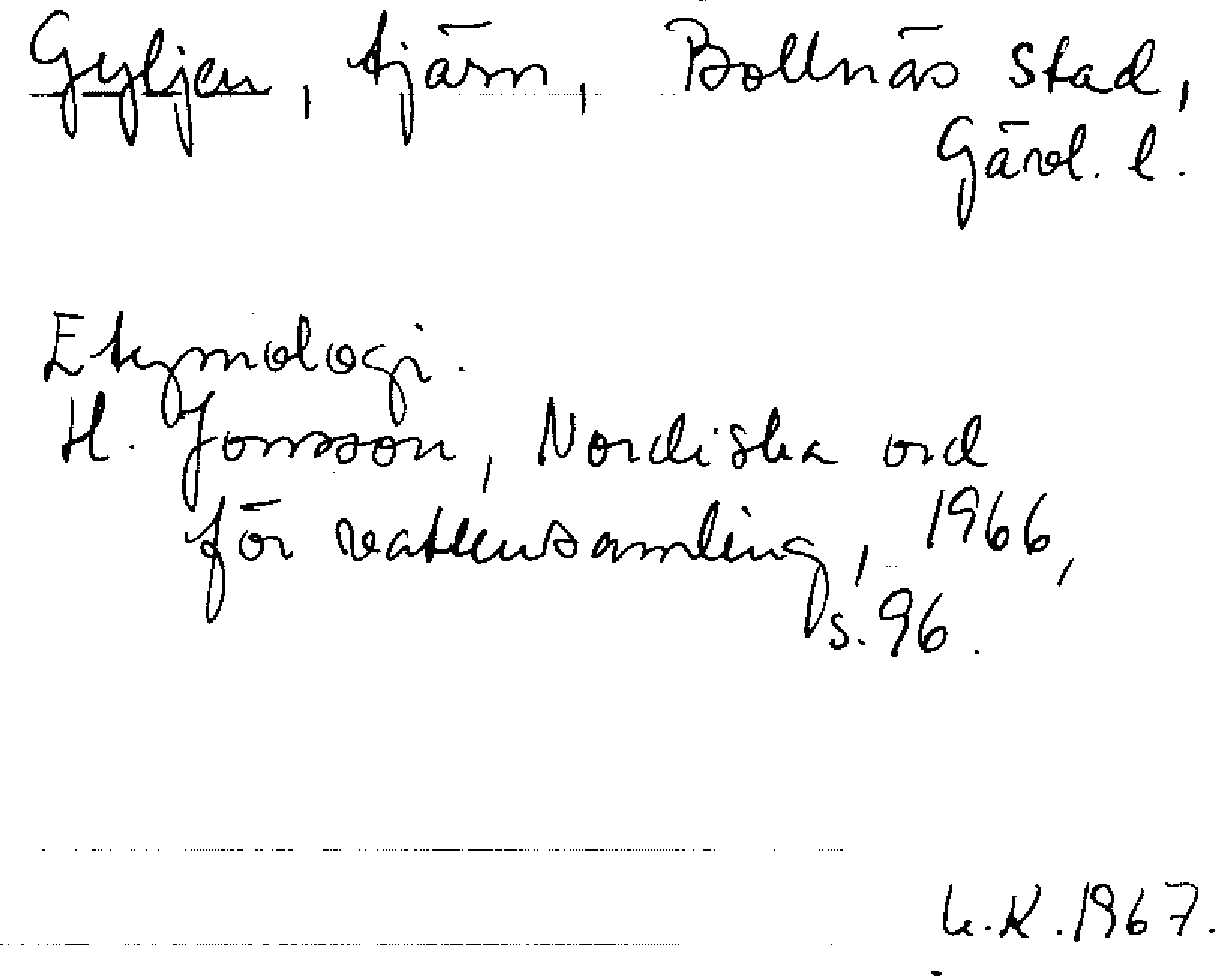 Gyljen, tjärn, Bollnäs stad,
Gävl. l.
Etymologi.
H. Jonsson, Nordiska ord
för vattensamling, 1966,
s. 96.
K. 1967.